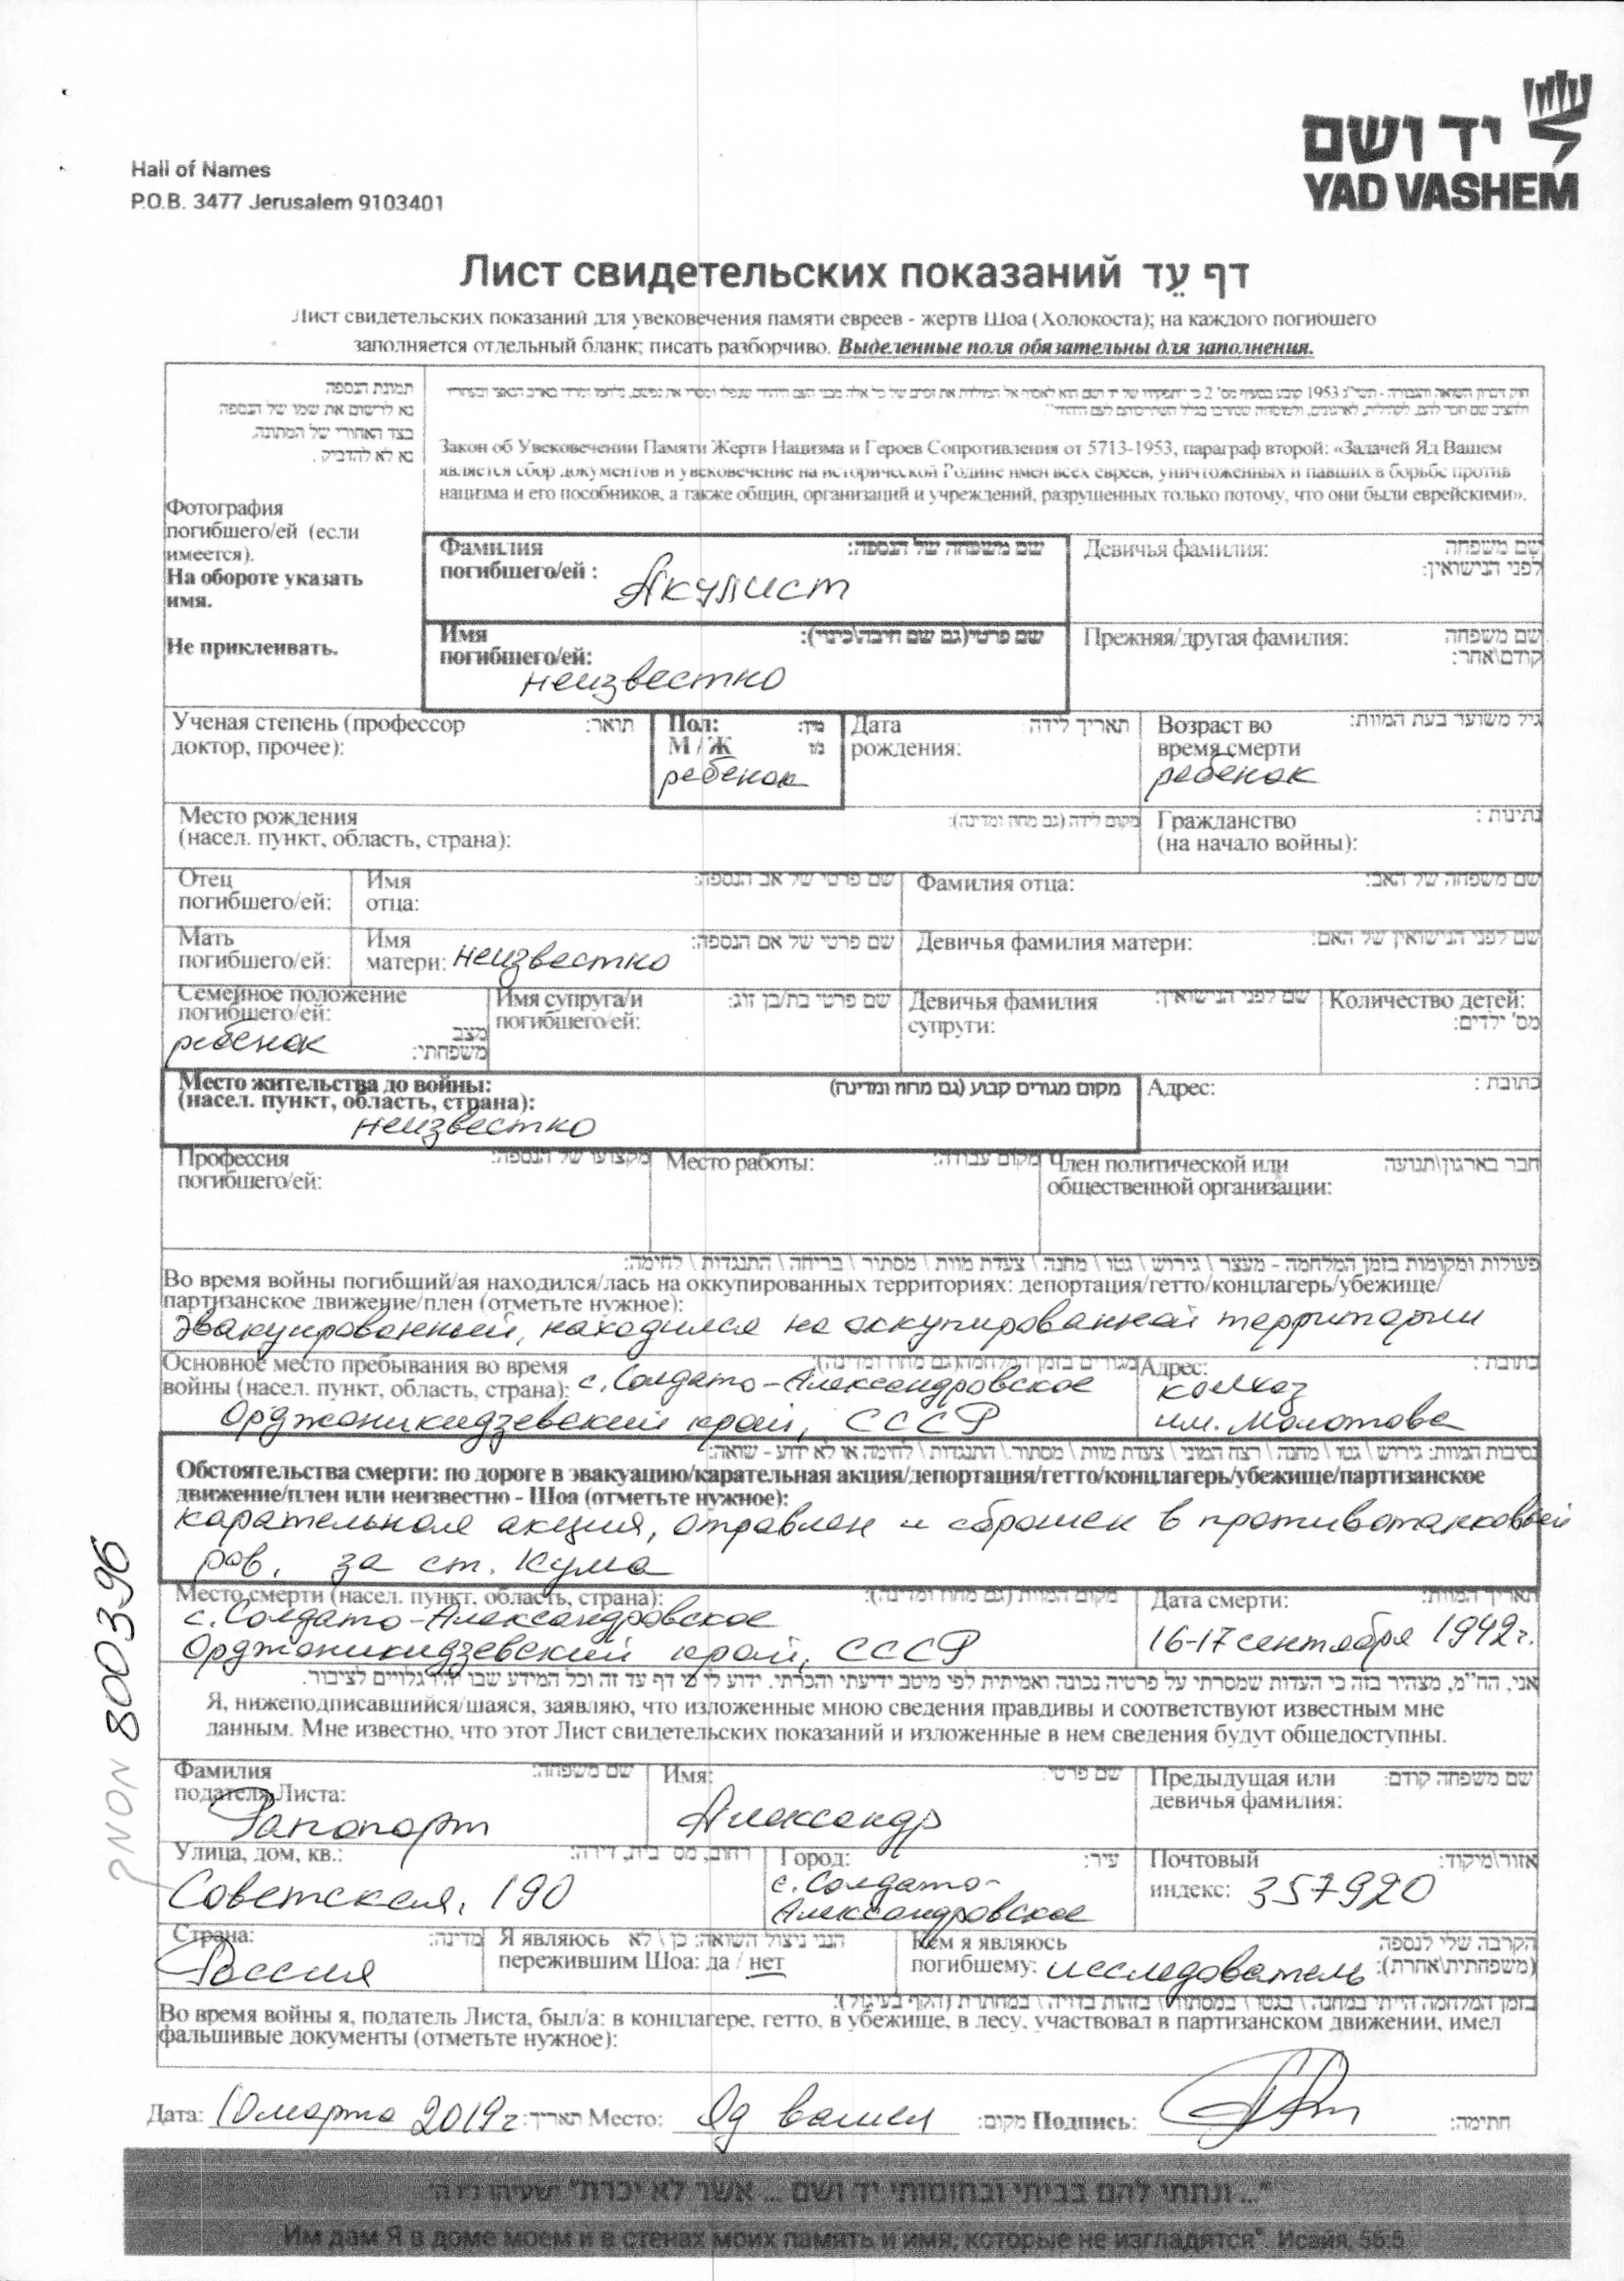 יד ושם
YAD VASHEM
Hall of Names
P.O.B. 3477 Jerusalem 9103401
Лист свидетельских показаний דף עֵד
Лист свидетельских показаний для увековечения памяти евреев - жертв Шоа (Холокоста); на каждого погибшего
заполняется отдельный бланк; писать разборчиво. Выделенные поля обязательны для заполнения.
תמונת הנספה
נא לרישום את שמו של הנספה
בצד האחורי של התמונה.
נא לא להדביק.
Фотография
погибшего/ей (если
имеется).
На обороте указать
имя.
Не приклеивать.
Закон об Увековечении Памяти Жертв Нацизма и Героев Сопротивления от 5713-1953, параграф второй: «Задачей Яд Вашем
является сбор документов и увековечение на исторической Родине имен всех евреев, уничтоженных и павших в борьбе против
нацизма и его пособников, а также общин, организаций и учреждений, разрушенных только потому, что они были еврейскими».
Фамилия שם משפחה של הנספה:
погибшего/ей : Акулист
Девичья фамилия: שם משפחה
לפני הנישואין:
Имя שם פרטי(גם שם חיבה\כינוי):
погибшего/ей:
неизвестно
Прежняя/другая фамилия: שם משפחה
קודם\אחר:
Ученая степень (профессор תואר:
доктор, прочее):
Пол: מין:
М / Ж ז\נ
ребенок
Дата תאריך לידה:
рождения:
Возраст во גיל משוער בעת המוות:
время смерти
ребенок
Место рождения מקום לידה (גם מחוז ומדינה):
(насел. пункт, область, страна):
Гражданство נתינות :
(на начало войны):
Отец
погибшего/ей:
Имя שם פרטי של אב הנספה:
отца:
Фамилия отца: שם משפחה של האב:
Мать
погибшего/ей:
Имя שם פרטי של אם הנספה:
матери: неизвестно
Девичья фамилия матери: שם לפני הנישואין של האם:
Семейное положение
погибшего/ей:
ребенок
מצב
משפחתי:
Имя супруга/и שם פרטי בת/בן זוג:
погибшего/ей:
Девичья фамилия שם לפני הנישואין:
супруги:
Количество детей:
מס' ילדים:
Место жительства до войны: מקום מגורים קבוע (גם מחוז ומדינה)
(насел. пункт, область, страна):
неизвестно
Адрес: כתובת :
Профессия מקצועו של הנספה:
погибшего/ей:
Место работы: מקום עבודה:
Член политической или חבר בארגון\תנועה
общественной организации:
פעולות ומקומות בזמן המלחמה - מעצר \ גירוש \ גטו \ מחנה \ צעדת מוות \ מסתור \ בריחה \ התנגדות \ לחימה:
Во время войны погибший/ая находился/лась на оккупированных территориях: депортация/гетто/концлагерь/убежище/
партизанское движение/плен (отметьте нужное):
Эвакуированный, находился на оккупированной территории
Основное место пребывания во время מגורים בזמן המלחמה(גם מחוז ומדינה):
войны (насел. пункт, область, страна): с. Солдато-Александровское
Орджоникидзевский край, СССР
Адрес: כתובת :
колхоз
им. Молотова
נסיבות המוות: גירוש \ גטו \ מחנה \ רצח המוני \ צעדת מוות \ מסתור \ התנגדות \ לחימה או לא ידוע - שואה:
Обстоятельства смерти: по дороге в эвакуацию/карательная акция/депортация/гетто/концлагерь/убежище/партизанское
движение/плен или неизвестно - Шоа (отметьте нужное):
карательная акция, отравлен и сброшен в противотанковый
ров, за ст. Кума
Место смерти (насел. пункт, область, страна): מקום המוות (גם מחוז ומדינה):
с. Солдато-Александровское
Орджоникидзевский край, СССР
Дата смерти: תאריך המוות:
16-17 сентября 1942 г.
אני, הח"מ, מצהיר בזה כי העדות שמסרתי על פרטיה נכונה ואמיתית לפי מיטב ידיעתי והכרתי. ידוע לי כי דף עד זה וכל המידע שבו יהיו גלויים לציבור.
Я, нижеподписавшийся/шаяся, заявляю, что изложенные мною сведения правдивы и соответствуют известным мне
данным. Мне известно, что этот Лист свидетельских показаний и изложенные в нем сведения будут общедоступны.
Фамилия שם משפחה:
подателя Листа:
Рапопорт
Имя: שם פרטי:
Александр
Предыдущая или שם משפחה קודם:
девичья фамилия:
Улица, дом, кв.: רחוב, מס' בית, דירה:
Советская, 190
Город: עיר:
с. Солдато-
Александровское
Почтовый אזור\מיקוד:
индекс: 357920
Страна: מדינה:
Россия
Я являюсь הנני ניצול השואה: כן \ לא
пережившим Шоа: да / нет
Кем я являюсь הקרבה שלי לנספה
погибшему: исследователь (משפחתית\אחרת):
בזמן המלחמה הייתי במחנה \ בגטו \ במסתור \ בזהות בדויה \ במחתרת (הקף בעיגול):
Во время войны я, податель Листа, был/а: в концлагере, гетто, в убежище, в лесу, участвовал в партизанском движении, имел
фальшивые документы (отметьте нужное):
Дата: 10 марта 2019 г תאריך: Место: Яд вашем מקום: Подпись: חתימה:
"... ונתתי להם בביתי ובחומותי יד ושם ... אשר לא יכרת" ישעיהו נו ה'
Им дам Я в доме моем и в стенах моих память и имя, которые не изгладятся". Исайя, 56:5
800396